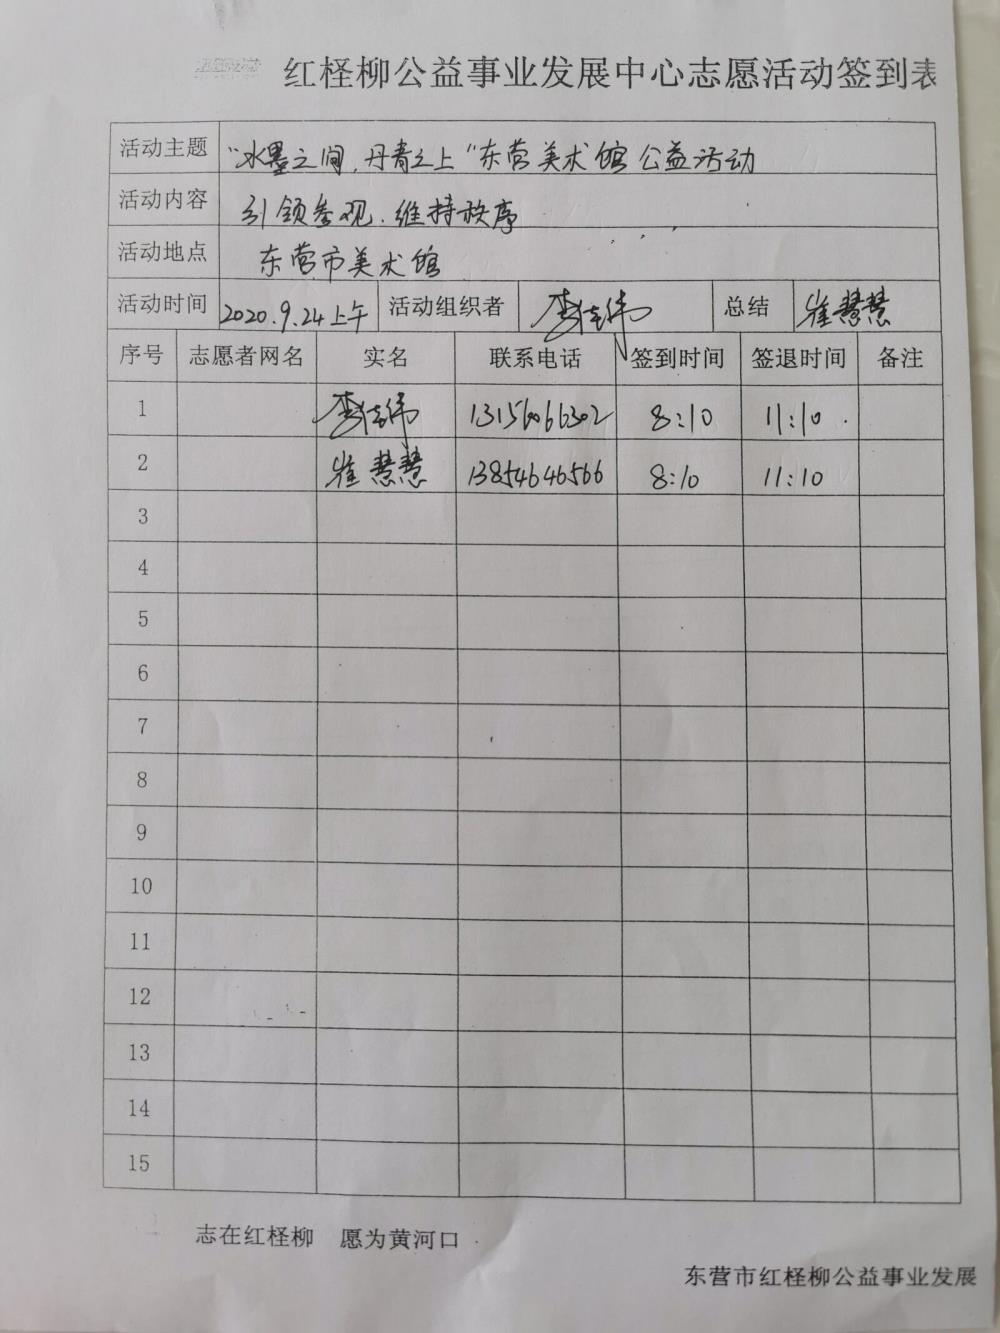 红柽柳公益事业发展中心志愿活动签到表
活动主题 "水墨之间,丹青之上"东营美术馆公益活动
活动内容 引领参观.维持秩序
活动地点 东营市美术馆
活动时间 2020.9.24上午 活动组织者 李佳伟 总结 崔慧慧
序号 志愿者网名 实名 联系电话 签到时间 签退时间 备注
1 李佳伟 13156066302 8:10 11:10
2 崔慧慧 13854646566 8:10 11:10
3
4
5
6
7
8
9
10
11
12
13
14
15
志在红柽柳 愿为黄河口
东营市红柽柳公益事业发展